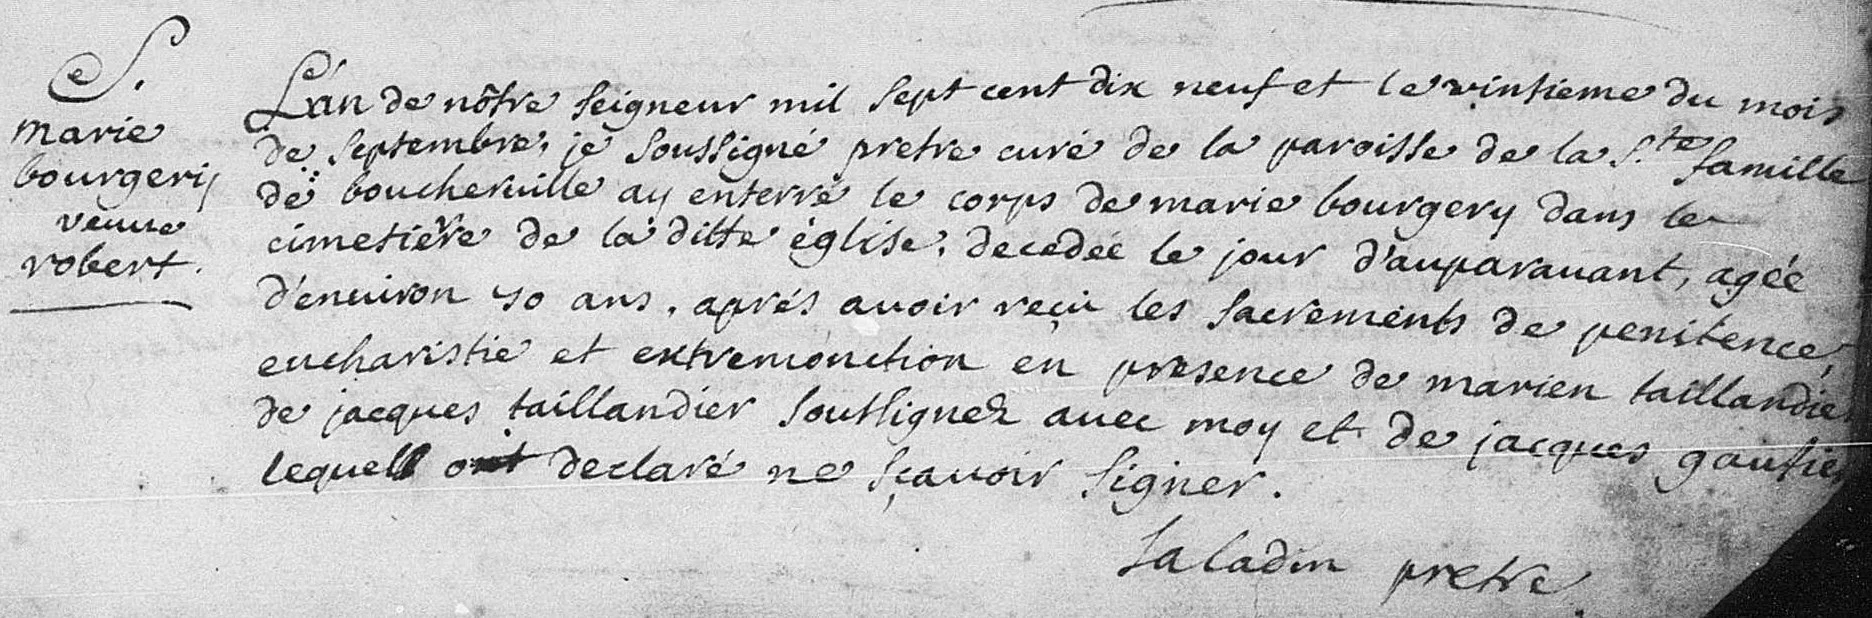 S.
marie
bourgery
veuue
robert.
L'an de nôtre seigneur mil sept cent dix neuf et le vintieme du mois
de septembre, je soussigné pretre curé de la paroisse de la S.te famille
de boucheruille ay enterré le corps de marie bourgery dans le
cimetiere de la ditte église, decedée le jour d'auparauant, agée
d'enuiron 70 ans, aprés auoir reçu les sacrements de penitence,
eucharistie et extremonction en presence de marien taillandier
de jacques taillandier soussignez auec moy et de jacques gautier
lequel declaré ne sçauoir signer.
saladin pretre